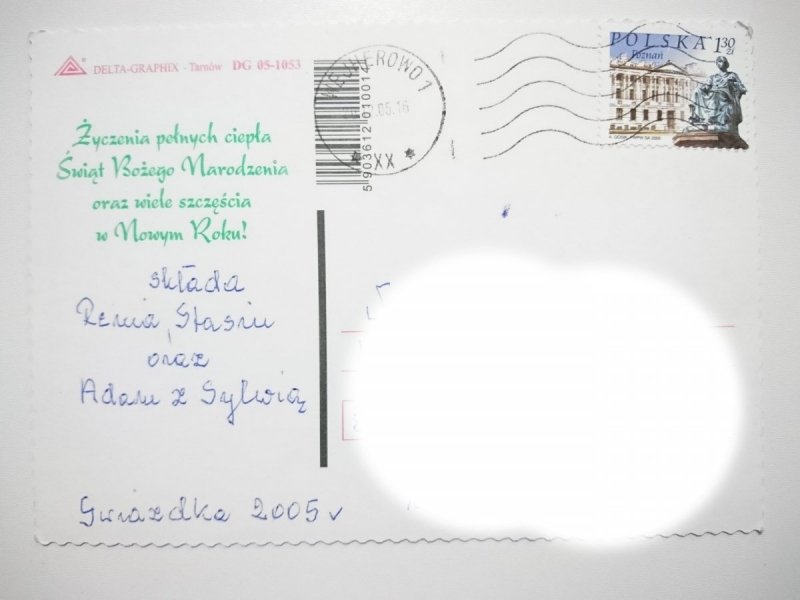 DELTA-GRAPHIX - Tarnów DG 05-1053
5903612010014
WEJHEROWO 1
05.16
* XX *
POLSKA 1,30 zł
Poznań
Życzenia pełnych ciepła
Świąt Bożego Narodzenia
oraz wiele szczęścia
w Nowym Roku!
składa
Renia, Stasiu
oraz
Adam z Sylwią
Gwiazdka 2005 r